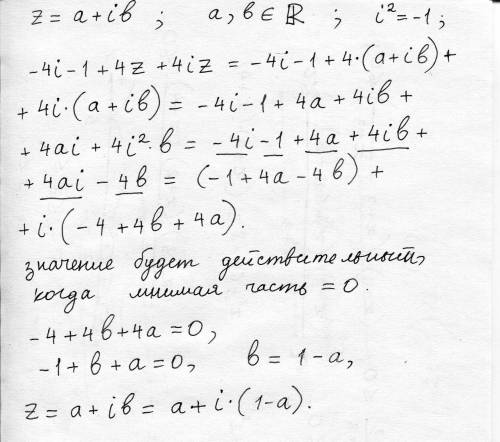 z = a+ib ; a, b ∈ ℝ ; i² = -1 ;
-4i-1+4z+4iz = -4i-1+4·(a+ib)+
+4i·(a+ib) = -4i-1+4a+4ib+
+4ai+4i²·b = -4i-1+4a+4ib+
+4ai-4b = (-1+4a-4b)+
+i·(-4+4b+4a).
значение будет действительный,
когда мнимая часть = 0.
-4+4b+4a=0,
-1+b+a=0, b = 1-a,
z = a+ib = a+i·(1-a).